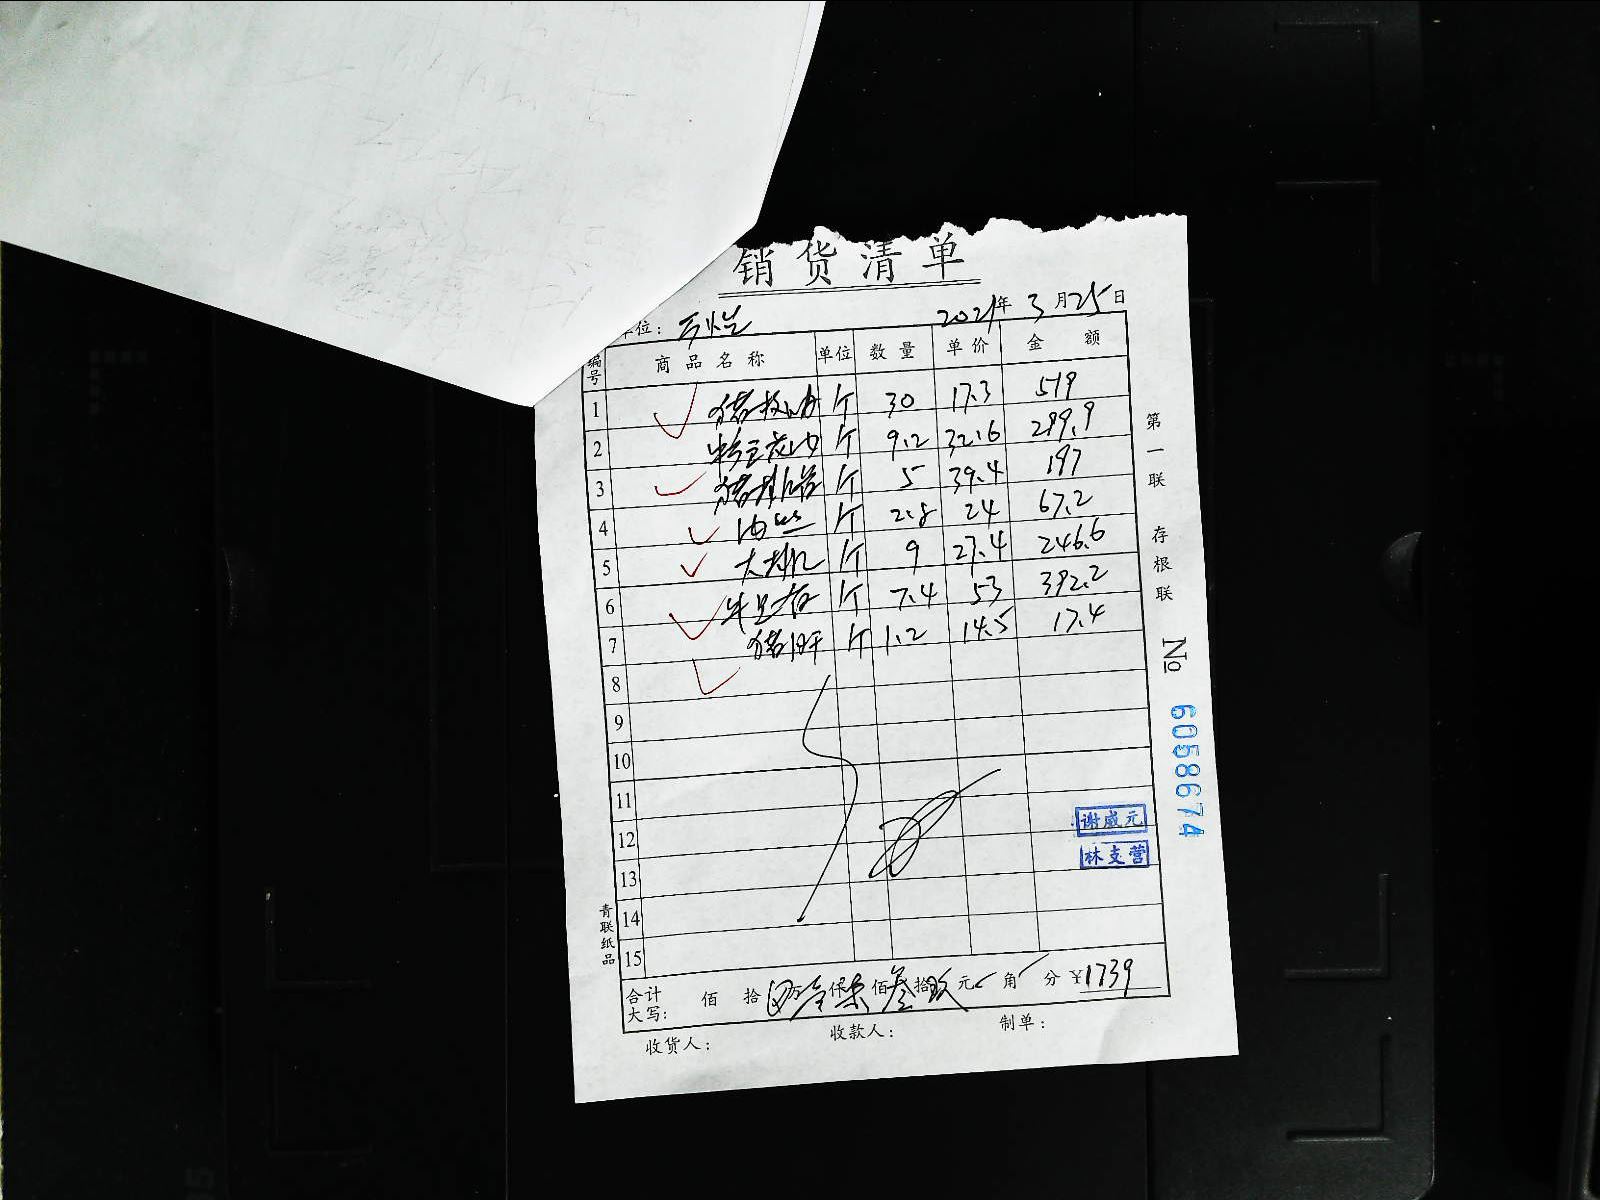 销货清单
2021年3月25日
单位:
编号 商品名称 单位 数量 单价 金额
1 猪板油 个 30 17.3 519
2 个 9.2 32.6 299.9
3 猪排骨 个 5 39.4 197
4 油丝 个 2.8 24 67.2
5 大排 个 9 27.4 246.6
6 个 7.4 53 392.2
7 猪肝 个 1.2 14.5 17.4
8
9
10
11
12
13
14
15
合计大写: 佰 拾 万壹仟柒佰叁拾玖元 角 分 ¥1739
收货人: 收款人: 制单:
第一联 存根联
No 6058674
谢威元
林支营
青联纸品